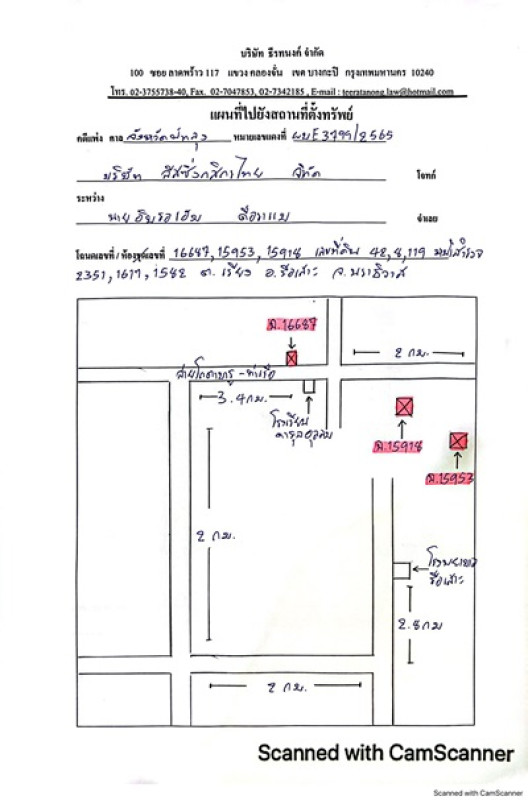 บริษัท ธีรทนงค์ จำกัด
100 ซอย ลาดพร้าว 117 แขวง คลองจั่น เขต บางกะปิ กรุงเทพมหานคร 10240
โทร. 02-3755738-40, Fax. 02-7047853, 02-7342185 , E-mail : teeratanong.law@hotmail.com
แผนที่ไปยังสถานที่ตั้งทรัพย์
คดีแพ่ง ศาล จังหวัดพัทลุง หมายเลขแดงที่ ผบE3799/2565
บริษัท ลีสซิ่งกสิกรไทย จำกัด โจทก์
ระหว่าง
นาย จำเลย
โฉนดเลขที่ / ห้องชุดเลขที่ 16687, 15953, 15918 เลขที่ดิน 42, 8, 119 หน้าสำรวจ
2351, 1617, 1582 ต. เรียง อ. รือเสาะ จ. นราธิวาส
ฉ.16687
2 กม.
3.4 กม.
โรงเรียน
ฉ.15918
ฉ.15953
2 กม.
โรงพยาบาล
รือเสาะ
2.8 กม
2 กม.
Scanned with CamScanner
Scanned with CamScanner